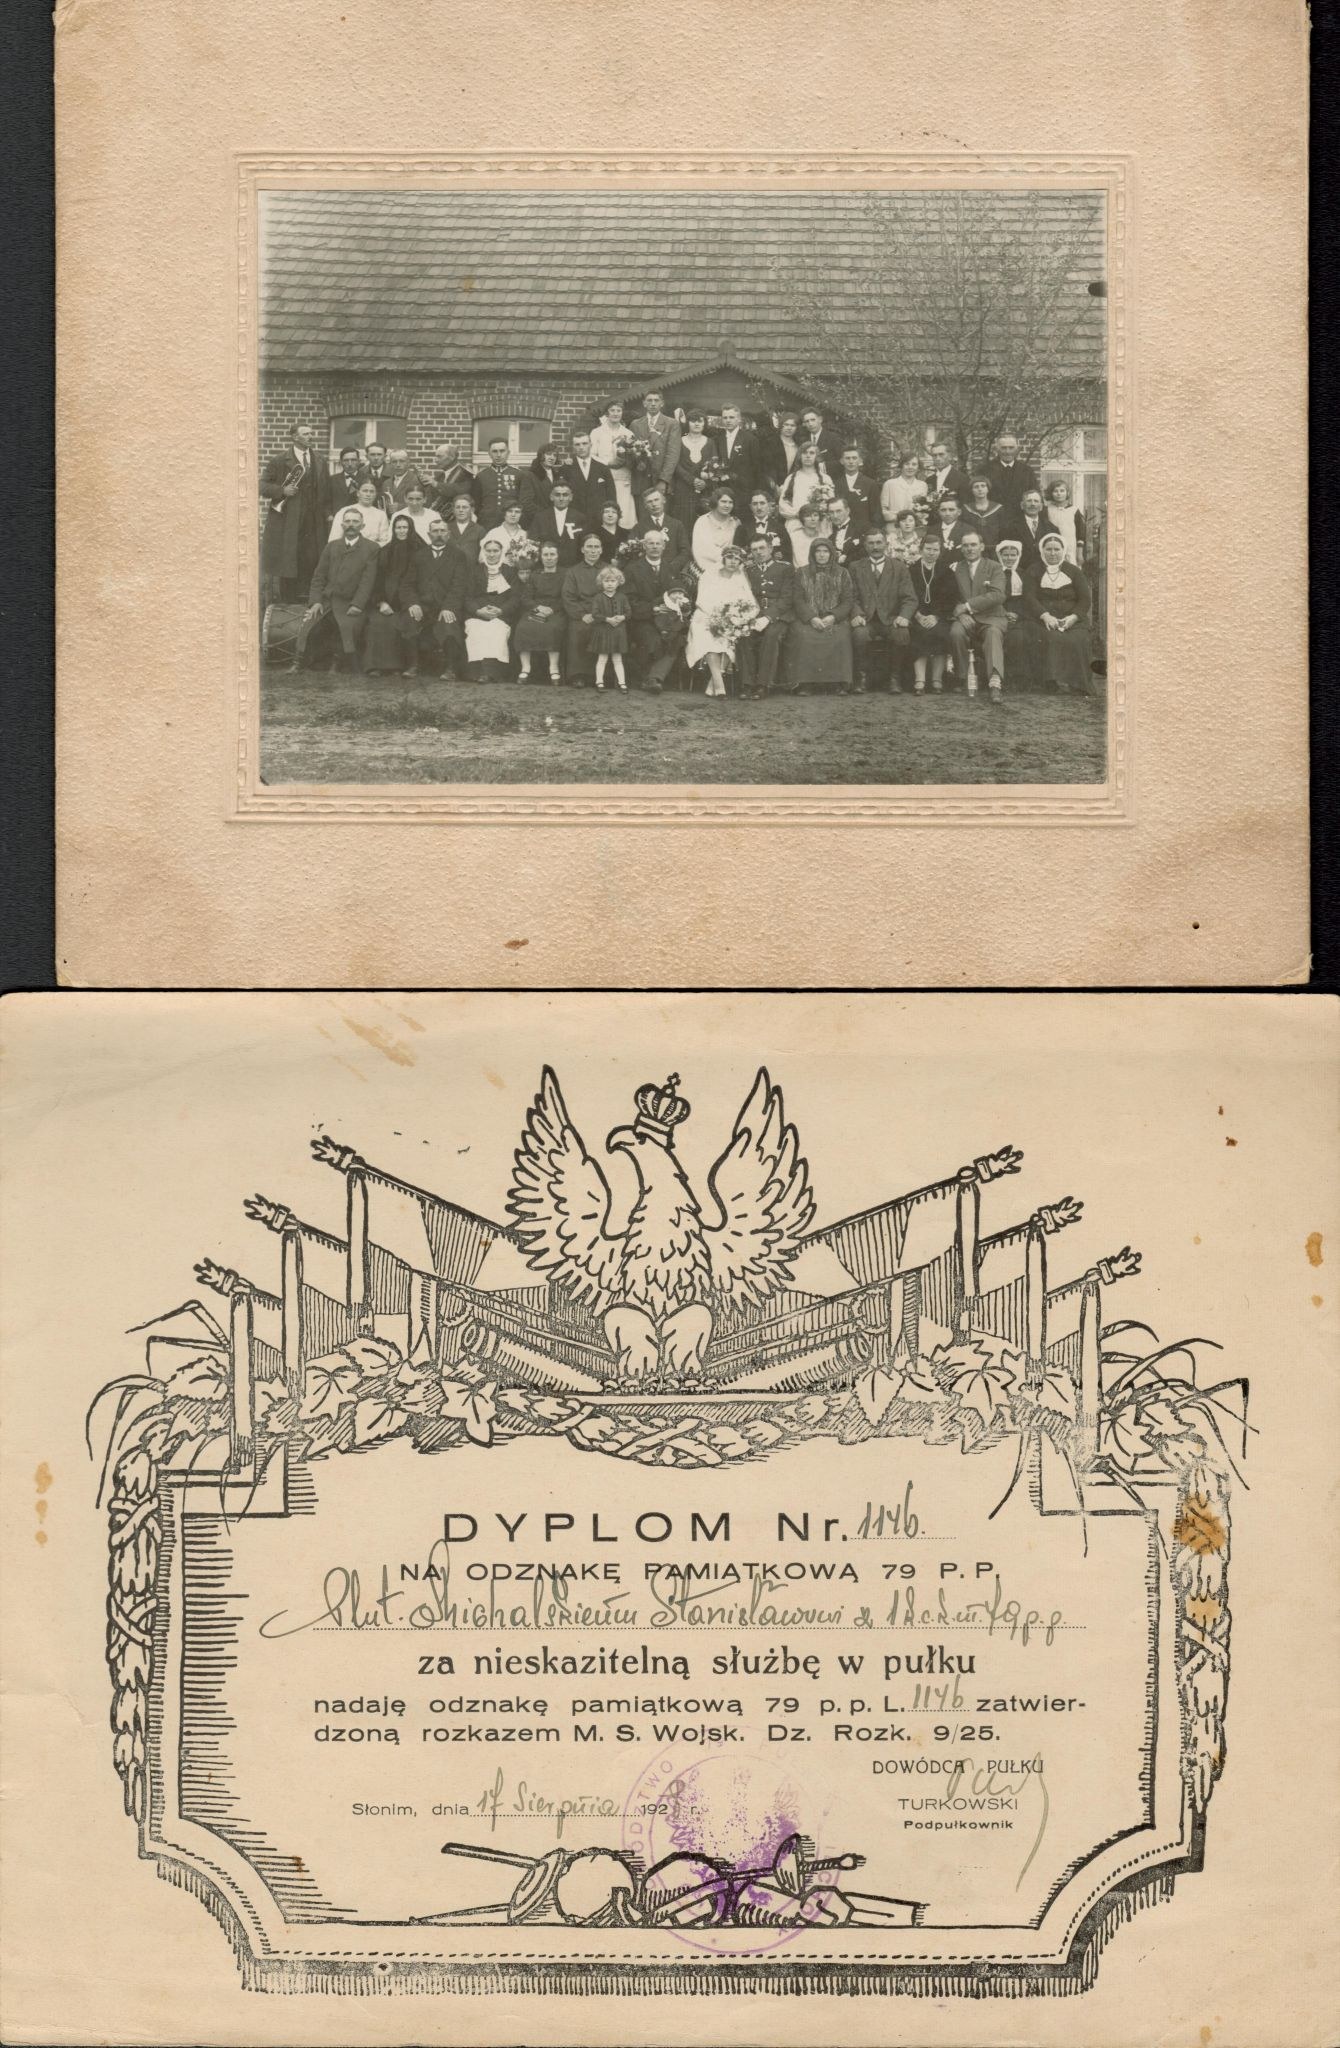 DYPLOM Nr. 1146.
NA ODZNAKĘ PAMIĄTKOWĄ 79 P. P.
Plut. Michalskiemu Stanisławowi z 1 k.c.k.m. 79 p.p.
za nieskazitelną służbę w pułku
nadaję odznakę pamiątkową 79 p. p. L. 1146 zatwier-
dzoną rozkazem M. S. Wojsk. Dz. Rozk. 9/25.
DOWÓDCA PUŁKU
Słonim, dnia 17 Sierpnia 192 r.
TURKOWSKI
Podpułkownik